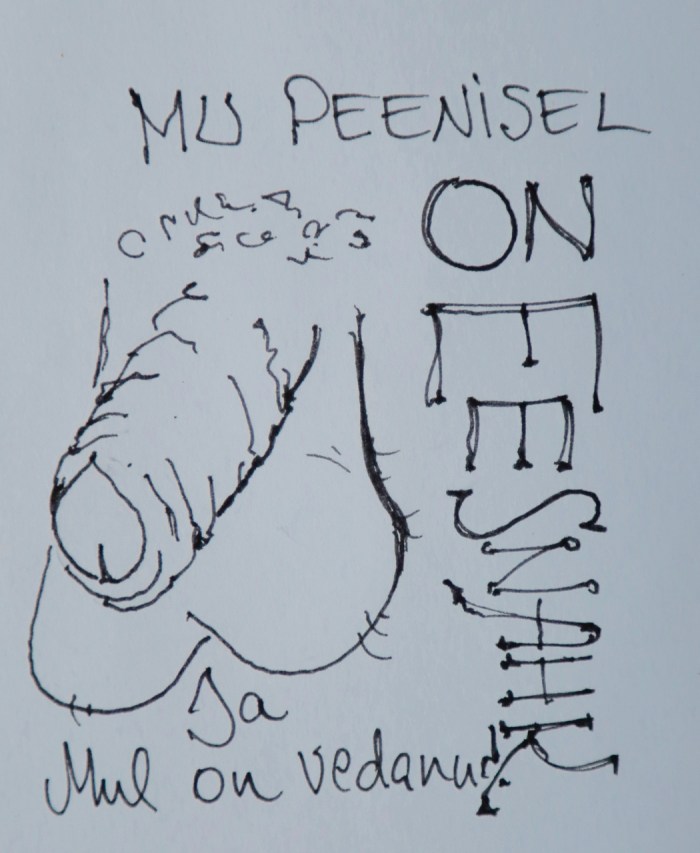 MU PEENISEL
ON
EESNAHK
Ja
Mul on vedanud.